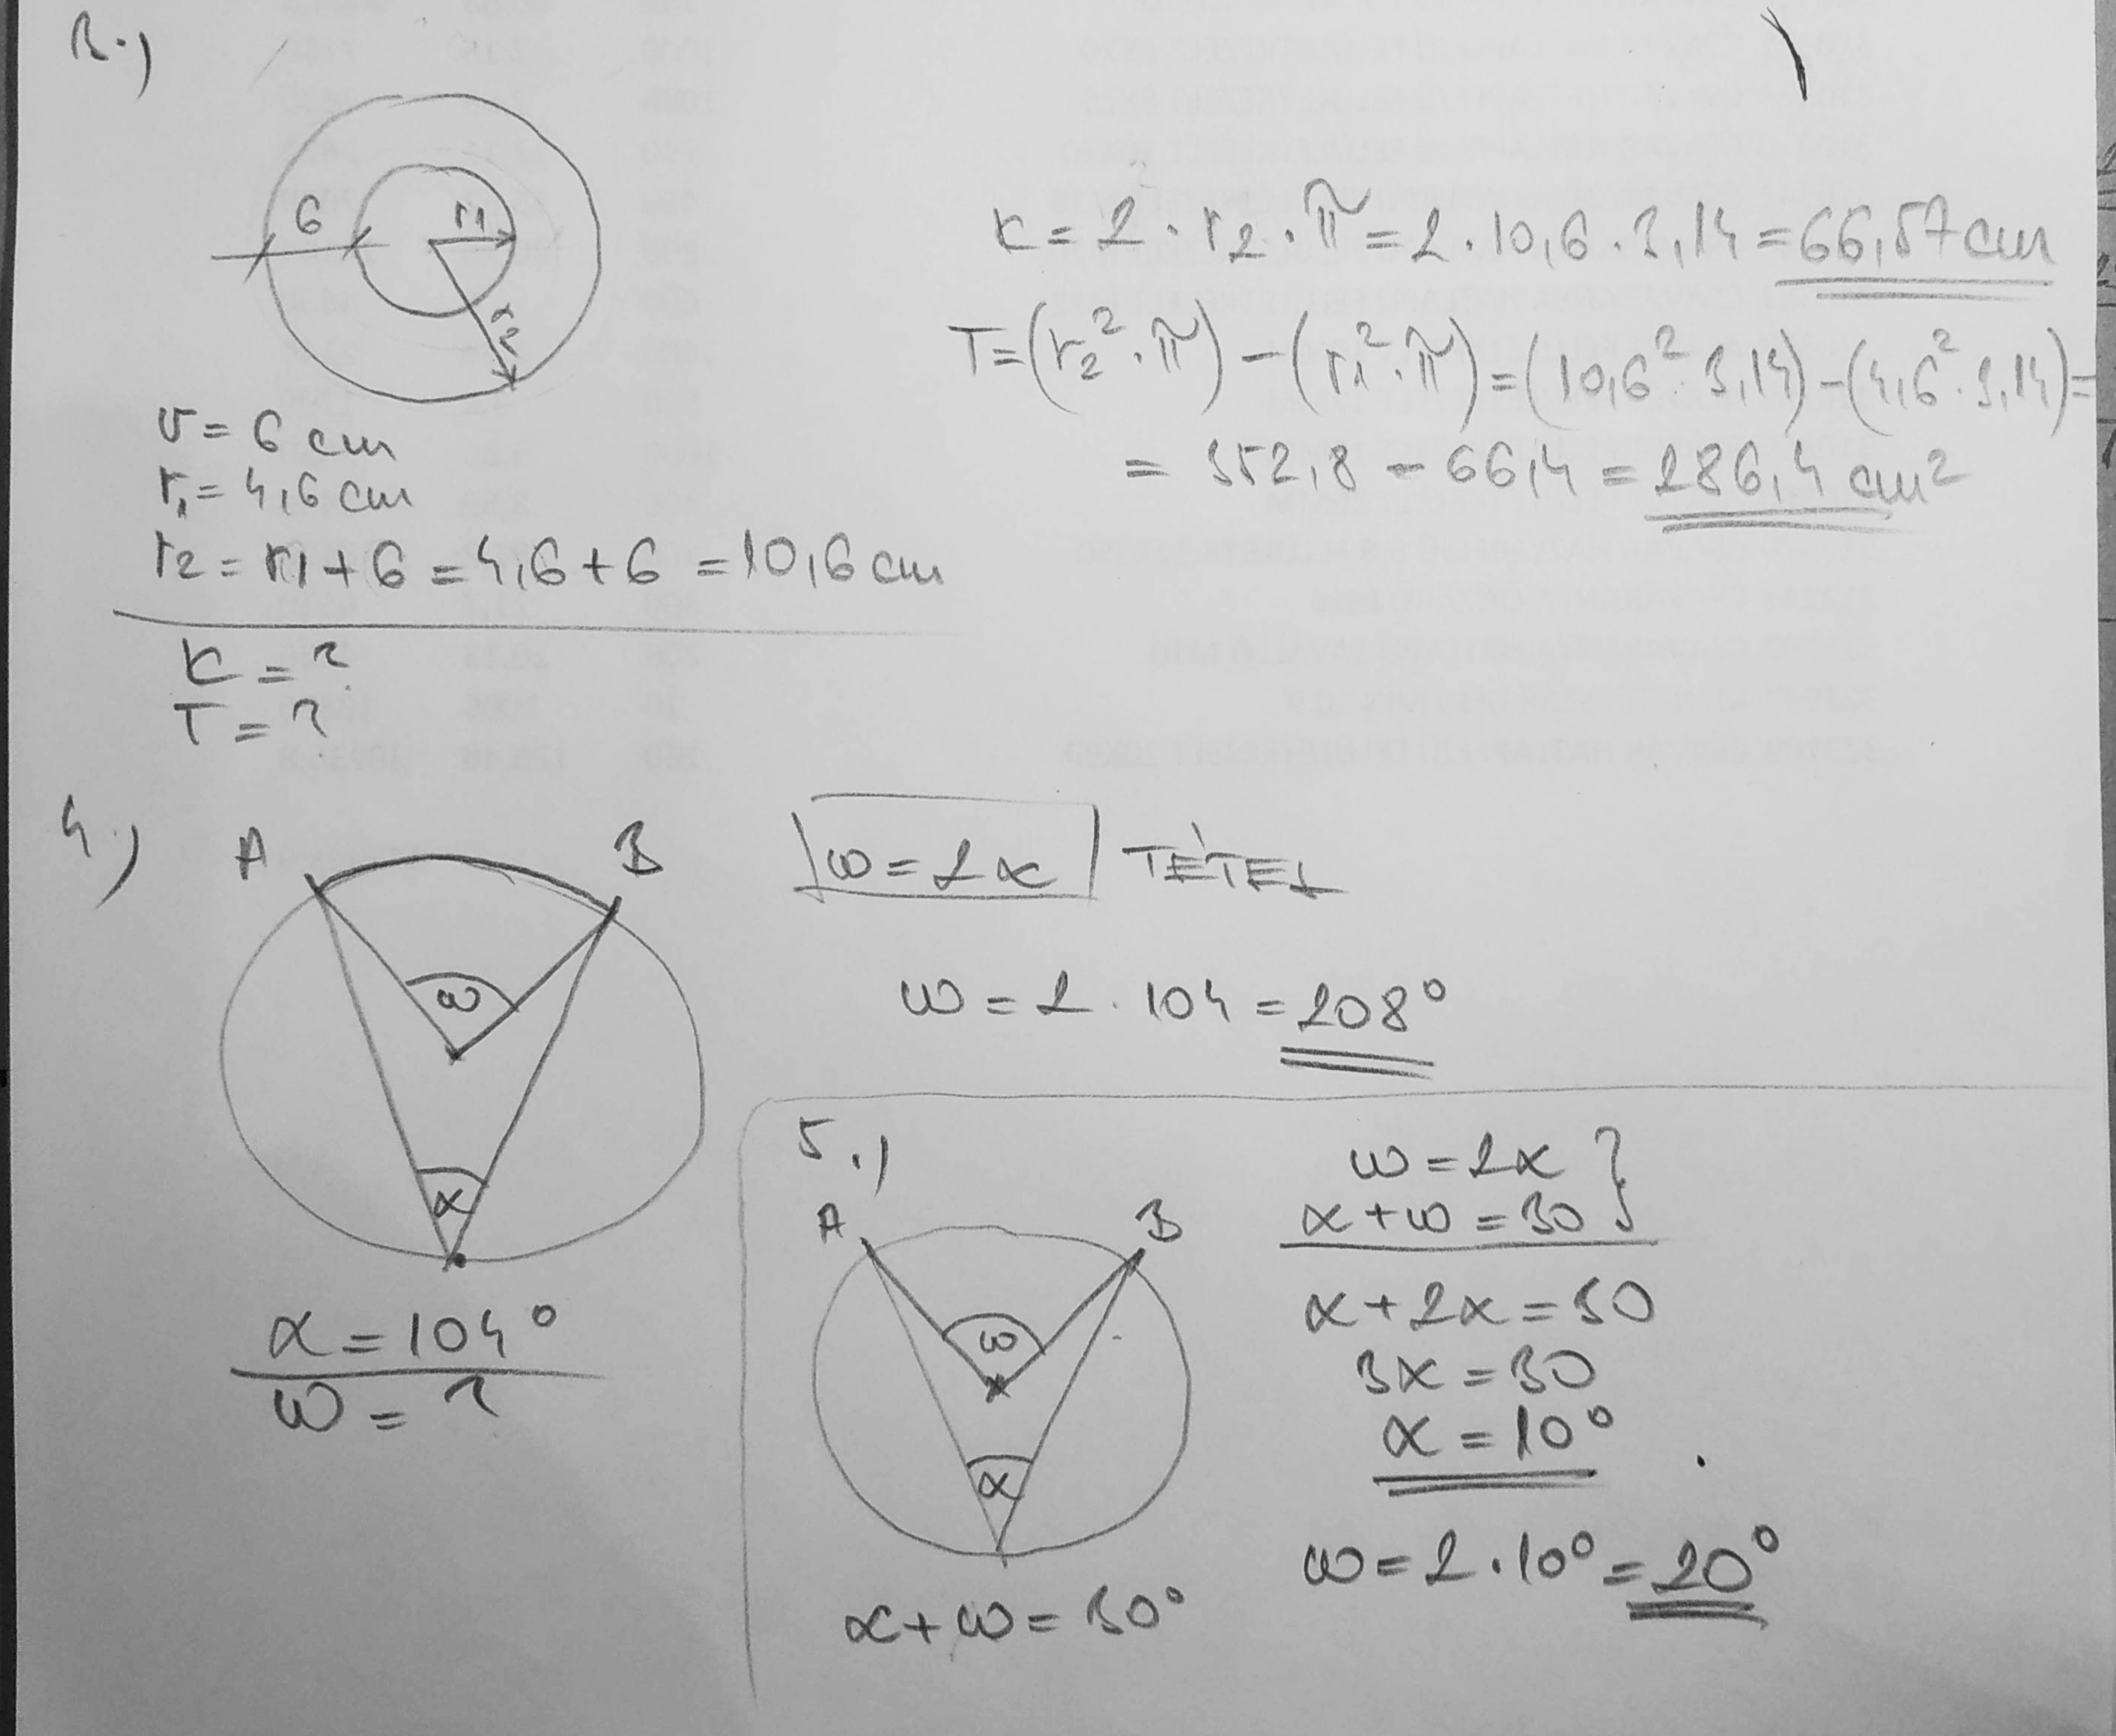 3.)
6 r1
r2
v = 6 cm
r1 = 4,6 cm
r2 = r1 + 6 = 4,6 + 6 = 10,6 cm
K = ?
T = ?
K = 2 · r2 · π = 2 · 10,6 · 3,14 = 66,57 cm
T = (r2² · π) - (r1² · π) = (10,6² · 3,14) - (4,6² · 3,14) =
= 352,8 - 66,4 = 286,4 cm²
4.)
A B
ω
α
α = 104°
ω = ?
ω = 2α TÉTEL
ω = 2 · 104 = 208°
5.)
A B
ω
α
α + ω = 30°
ω = 2α }
α + ω = 30
α + 2α = 30
3α = 30
α = 10°
ω = 2 · 10° = 20°